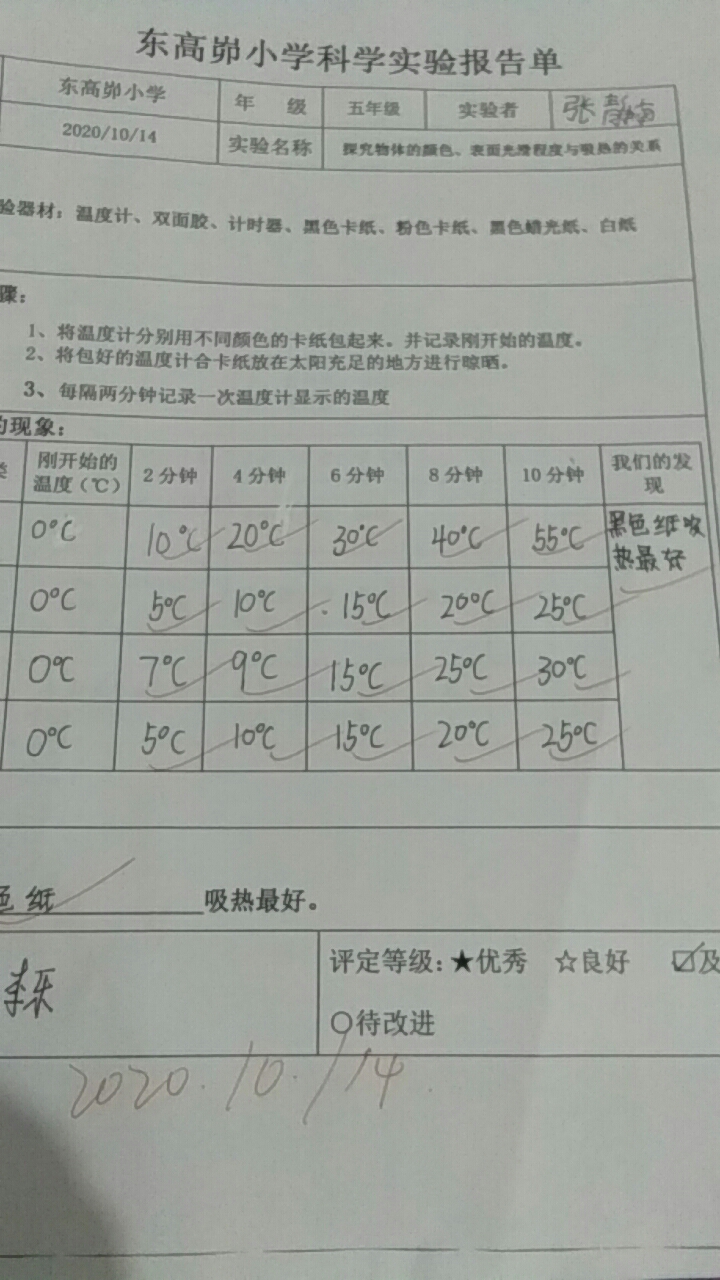 东高峁小学科学实验报告单
东高峁小学 年 级 五年级 实验者 张
2020/10/14 实验名称 探究物体的颜色、表面光滑程度与吸热的关系
验器材：温度计、双面胶、计时器、黑色卡纸、粉色卡纸、黑色蜡光纸、白纸
骤：
1、将温度计分别用不同颜色的卡纸包起来。并记录刚开始的温度。
2、将包好的温度计合卡纸放在太阳充足的地方进行晾晒。
3、每隔两分钟记录一次温度计显示的温度
的现象：
类 刚开始的温度（℃） 2分钟 4分钟 6分钟 8分钟 10分钟 我们的发现
0℃ 10℃ 20℃ 30℃ 40℃ 55℃ 黑色纸吸热最好
0℃ 5℃ 10℃ 15℃ 20℃ 25℃
0℃ 7℃ 9℃ 15℃ 25℃ 30℃
0℃ 5℃ 10℃ 15℃ 20℃ 25℃
色纸 吸热最好。
评定等级：★优秀 ☆良好 ☑及
○待改进
2020.10.14